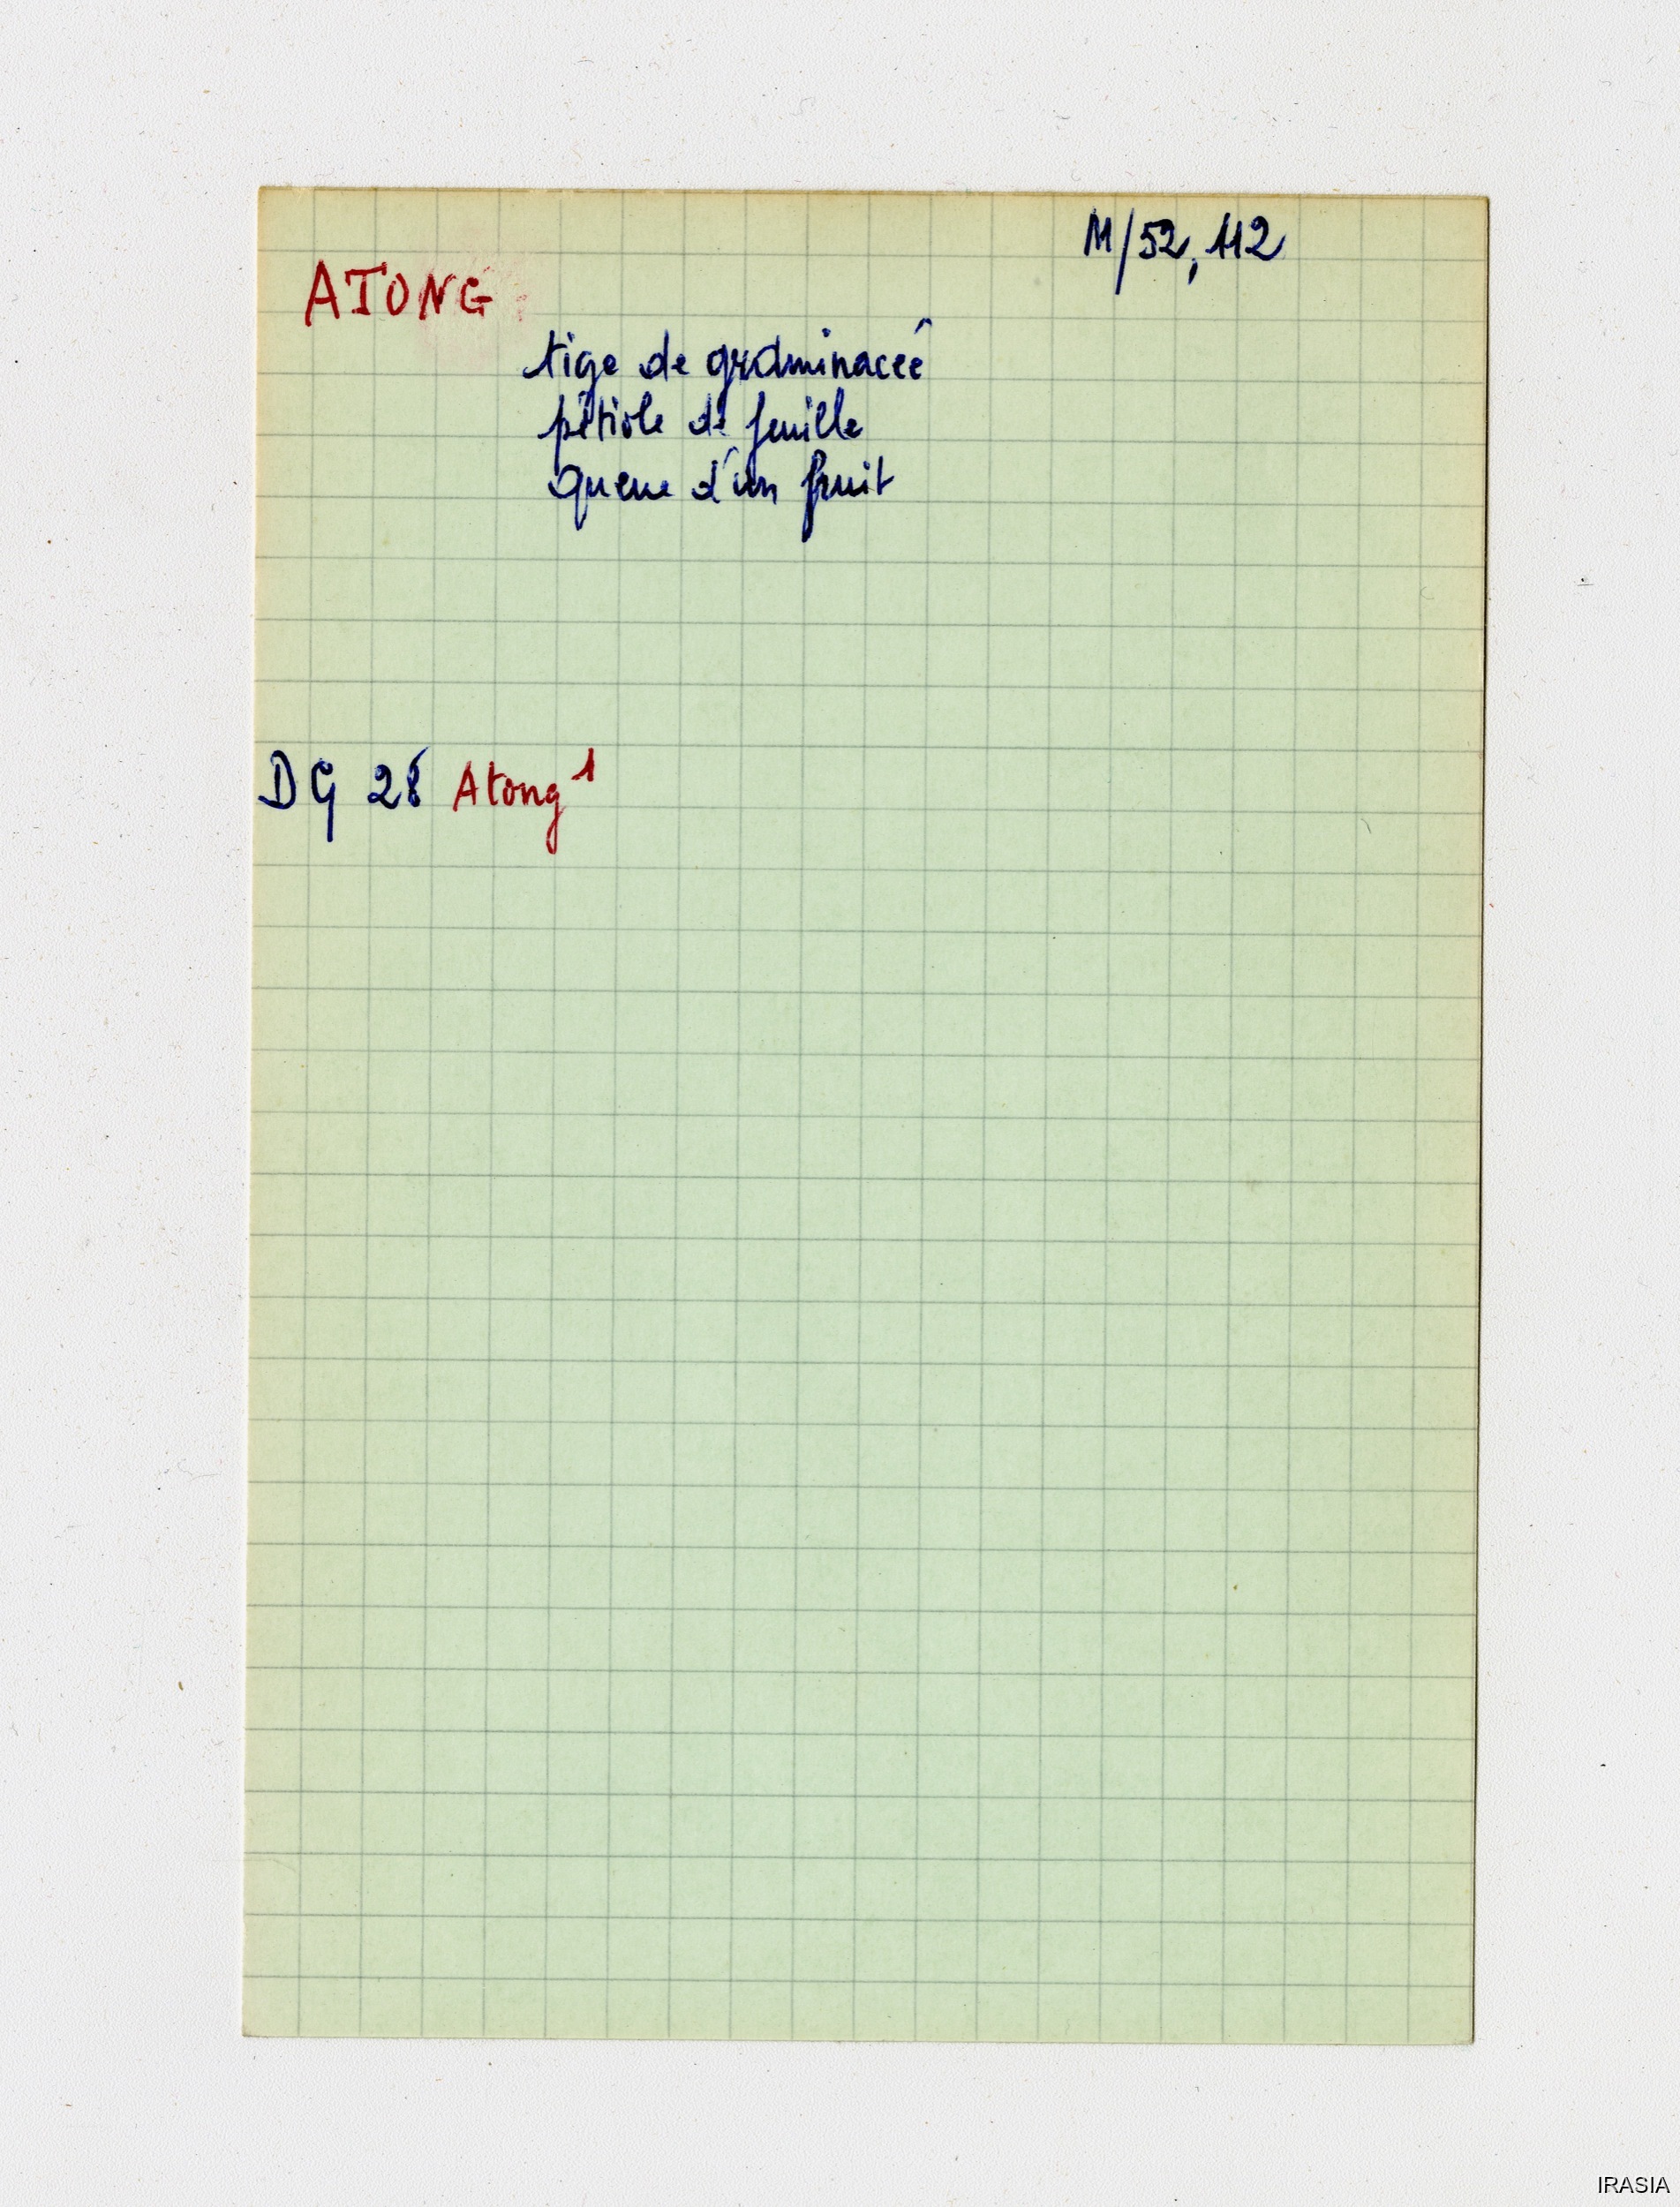 M/52, 112
ATONG
tige de graminacée
pétiole de feuille
queue d'un fruit
DG 28 Atong¹
IRASIA